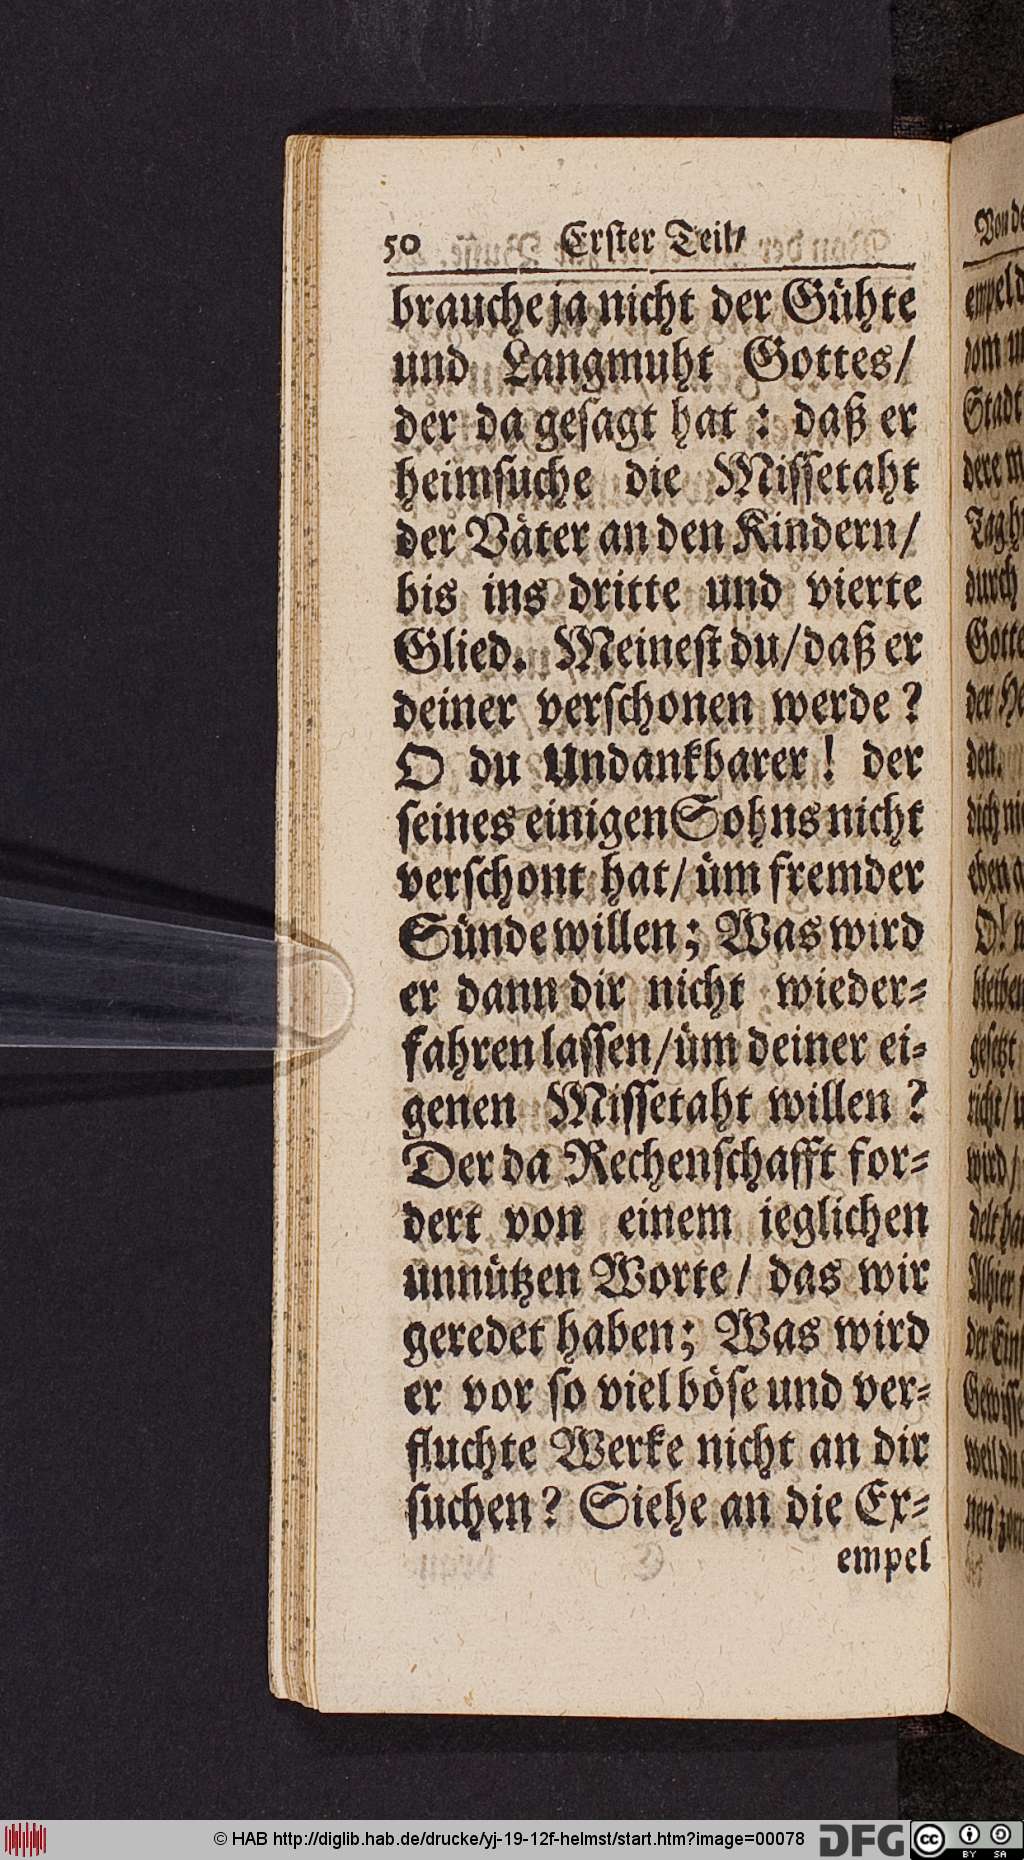 50 Erster Teil/
brauche ja nicht der Gühte
und Langmuht Gottes/
der da gesagt hat : daß er
heimsuche die Missetaht
der Väter an den Kindern/
bis ins dritte und vierte
Glied. Meinest du/ daß er
deiner verschonen werde ?
O du Undankbarer ! der
seines einigen Sohns nicht
verschont hat/ üm fremder
Sünde willen ; Was wird
er dann dir nicht wieder-
fahren lassen/ üm deiner ei-
genen Missetaht willen ?
Der da Rechenschafft for-
dert von einem ieglichen
unnützen Worte/ das wir
geredet haben; Was wird
er vor so viel böse und ver-
fluchte Werke nicht an dir
suchen ? Siehe an die Ex-
empel
Von de
empel d
dom u
Stadt
dere m
Tag h
durch
Gotte
der He
den.
dich ni
eben a
O! w
bleiben
gesetzt
richt/ u
wird/
delt ha
Alhier
der Ein
Gewisse
weil du
nen zor
© HAB http://diglib.hab.de/drucke/yj-19-12f-helmst/start.htm?image=00078
DFG
cc BY SA